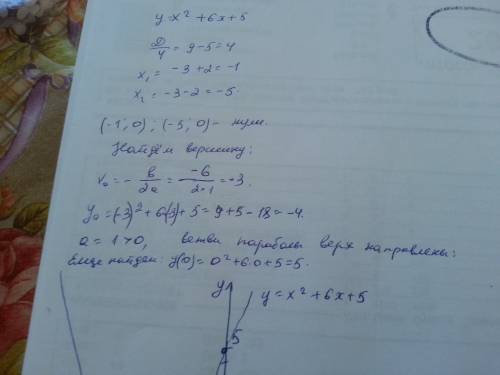 y=x² + 6x + 5
D/4 = 9-5=4
x₁ = -3+2=-1
x₂ = -3-2=-5.
(-1; 0) ; (-5; 0) - нули.
Найдём вершину:
x₀ = - в/2a = -6/2·1 = -3.
y₀ = (-3)² + 6(-3) + 5 = 9+5-18=-4.
a = 1 > 0, ветви параболы верх направлены:
Еще найдем: y(0) = 0² + 6·0 + 5 = 5.
y y = x² + 6x + 5
5